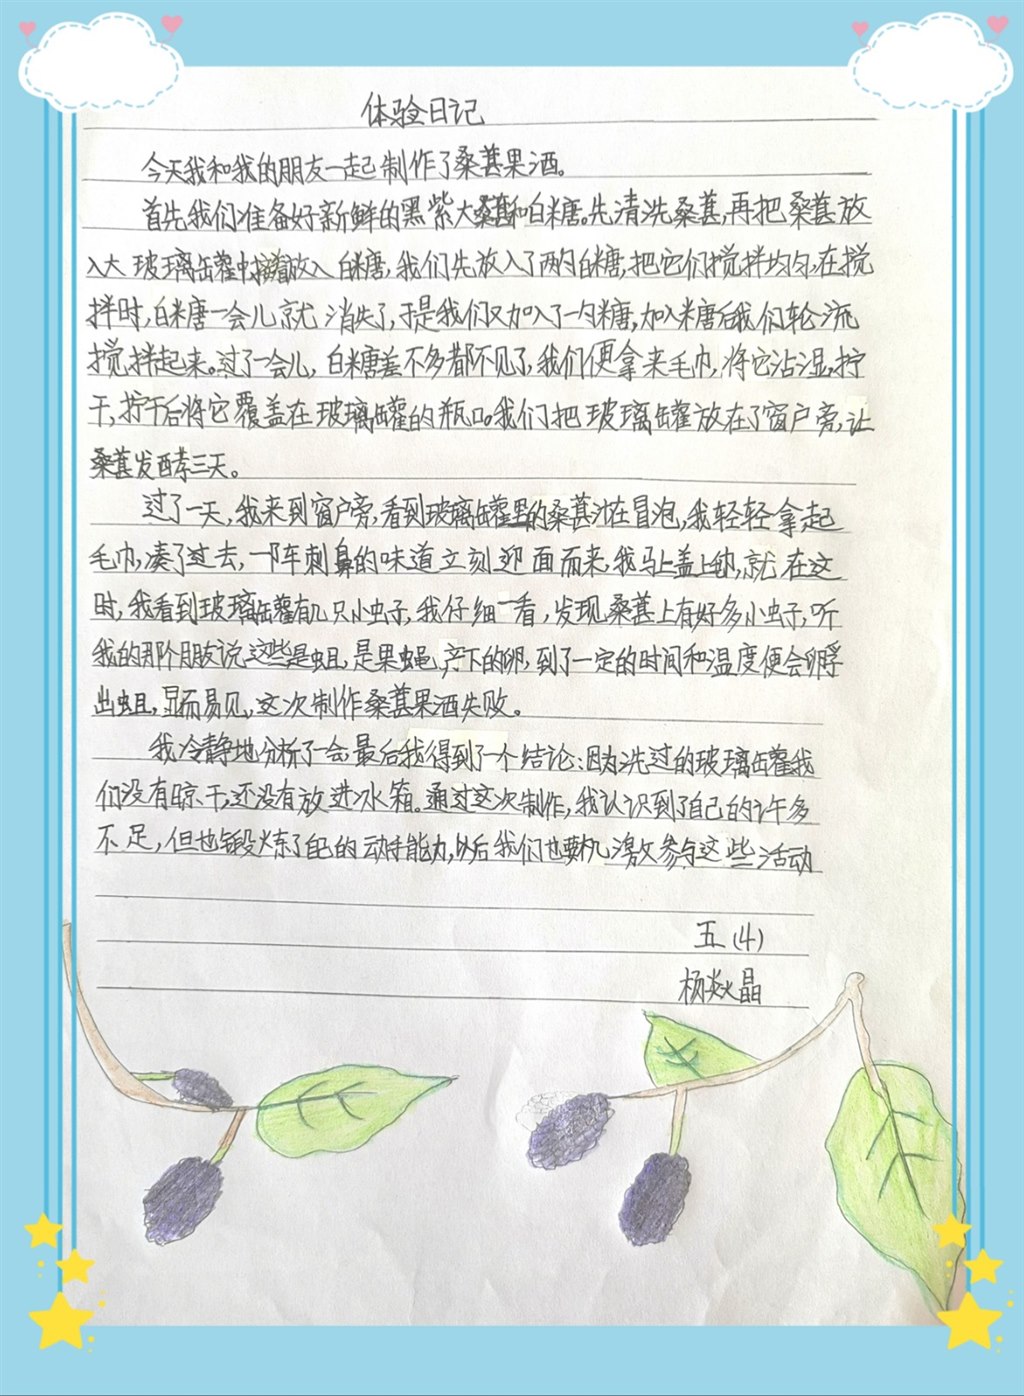 体验日记
今天我和我的朋友一起制作了桑葚果酒。
首先我们准备好新鲜的黑紫大桑葚和白糖。先清洗桑葚,再把桑葚放
入大玻璃缸罐中接着放入白糖,我们先放入了两勺白糖,把它们搅拌均匀,在搅
拌时,白糖一会儿就消失了,于是我们又加入了一勺糖,加入米糖后我们轮流
搅拌起来。过了一会儿,白糖差不多都不见了,我们便拿来毛巾,将它沾湿,拧
干,拧干后将它覆盖在玻璃缸罐的瓶口。我们把玻璃缸罐放在了窗户旁,让
桑葚发酵三天。
过了一天,我来到窗户旁,看到玻璃缸罐里的桑葚汁在冒泡,我轻轻拿起
毛巾,凑了过去,一阵刺鼻的味道立刻迎面而来,我马上盖上毛巾,就在这
时,我看到玻璃缸罐有几只小虫子,我仔细一看,发现桑葚上有好多小虫子,听
我的那个朋友说,这些是蛆,是果蝇产下的卵,到了一定的时间和温度便会孵
出蛆,显而易见,这次制作桑葚果酒失败。
我冷静地分析了一会,最后我得到了一个结论:因为洗过的玻璃缸罐我
们没有晾干,还没有放进冰箱。通过这次制作,我认识到了自己的许多
不足,但也锻炼了自己的动手能力,以后我们也要积激参与这些活动
五(4)
杨焱晶